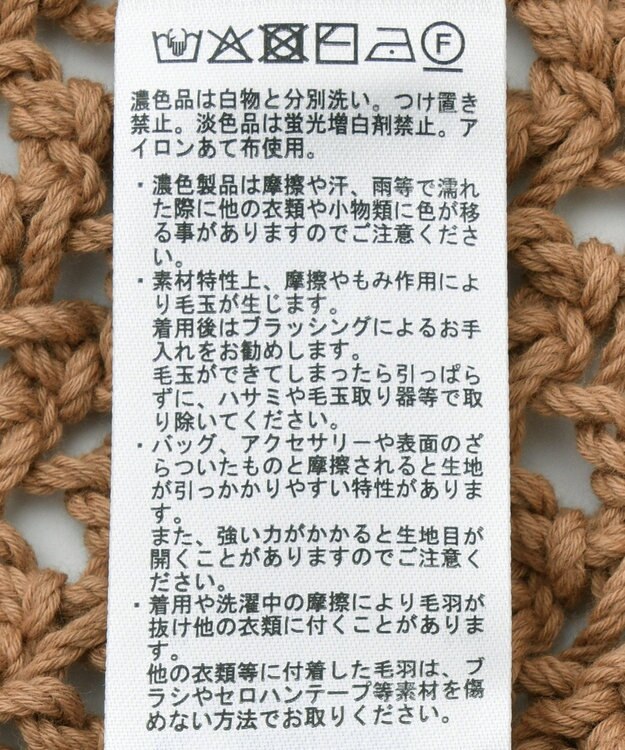 F
濃色品は白物と分別洗い。つけ置き
禁止。淡色品は蛍光増白剤禁止。ア
イロンあて布使用。
・濃色製品は摩擦や汗、雨等で濡れ
た際に他の衣類や小物類に色が移
る事がありますのでご注意くださ
い。
・素材特性上、摩擦やもみ作用によ
り毛玉が生じます。
着用後はブラッシングによるお手
入れをお勧めします。
毛玉ができてしまったら引っぱら
ずに、ハサミや毛玉取り器等で取
り除いてください。
・バッグ、アクセサリーや表面のざ
らついたものと摩擦されると生地
が引っかかりやすい特性がありま
す。
また、強い力がかかると生地目が
開くことがありますのでご注意く
ださい。
・着用や洗濯中の摩擦により毛羽が
抜け他の衣類に付くことがありま
す。
他の衣類等に付着した毛羽は、ブ
ラシやセロハンテープ等素材を傷
めない方法でお取りください。